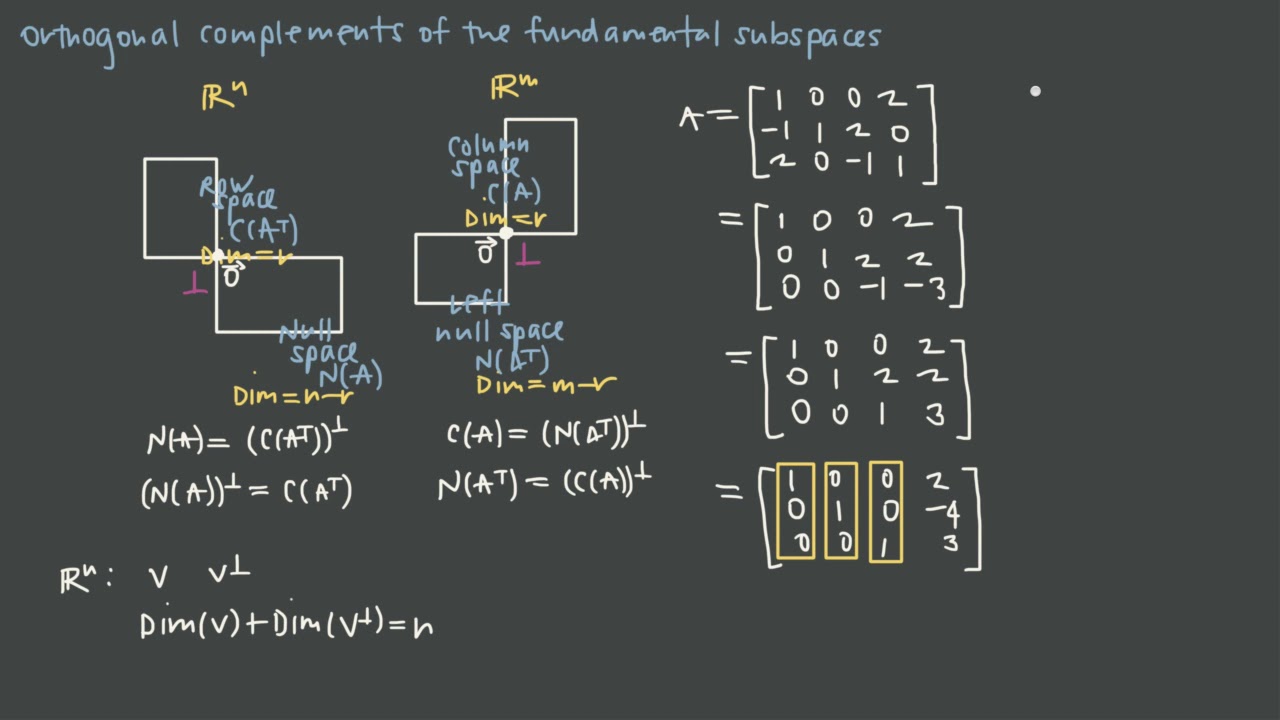 orthogonal complements of the fundamental subspaces
ℝⁿ
Row
space
C(Aᵀ)
Dim = r
⊥
0⃗
Null
space
N(A)
Dim = n-r
N(A) = (C(Aᵀ))⊥
(N(A))⊥ = C(Aᵀ)
ℝᵐ
Column
space
C(A)
Dim = r
0⃗
⊥
Left
null space
N(Aᵀ)
Dim = m-r
C(A) = (N(Aᵀ))⊥
N(Aᵀ) = (C(A))⊥
ℝⁿ: V V⊥
Dim(V) + Dim(V⊥) = n
A = [1 0 0 2
-1 1 2 0
2 0 -1 1]
= [1 0 0 2
0 1 2 2
0 0 -1 -3]
= [1 0 0 2
0 1 2 2
0 0 1 3]
= [1 0 0 2
0 1 0 -4
0 0 1 3]